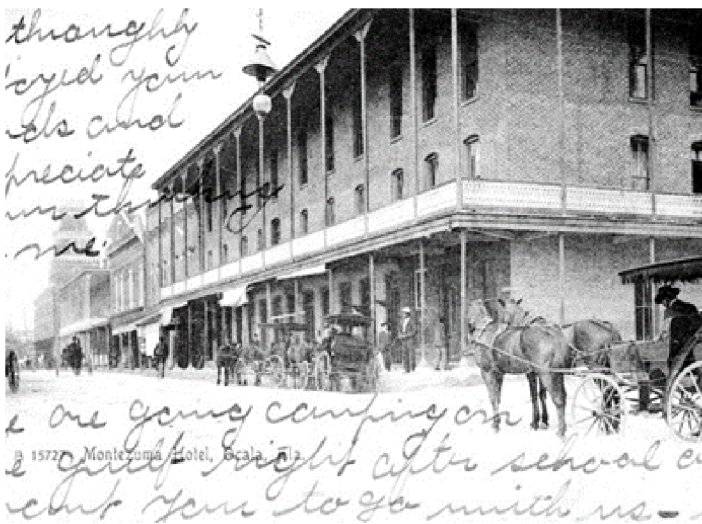 thoroughly
joyed your
ds and
preciate
our thinking
me.
e are going camping on
B 15727. Montezuma Hotel, Ocala, Fla.
e gulf right after school c
want you to go with us -